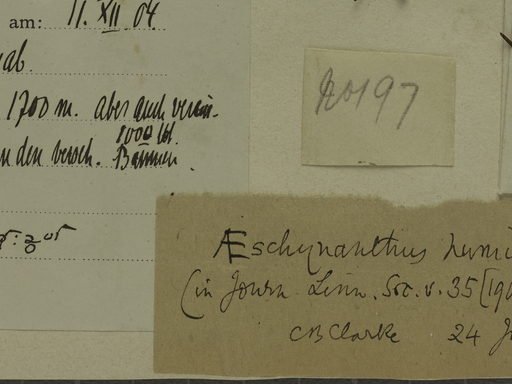 am: 11. XII. 04
No 197
1700 m. aber auch verein-
1000 
n den versch. Bäumen.
Æschynanthus humi
(in Journ. Linn. Soc. v. 35 [190
CBClarke 24 J